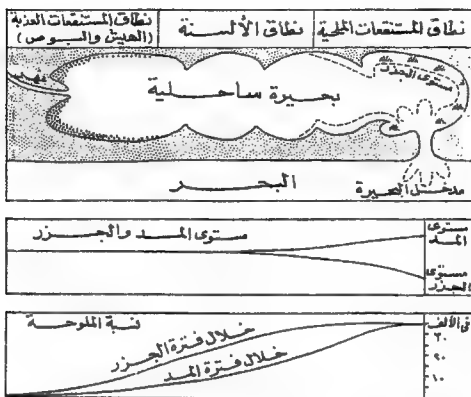 نطاق المستنقعات الملحية
نطاق الألسنة
نطاق المستنقعات العذبة
(الهيش والبوص)
نهر
مستوى الجزر
بحيرة ساحلية
البحر
مدخل البحيرة
مستوى المد والجزر
مستوى
المد
مستوى
الجزر
نسبة الملوحة
خلال فترة الجزر
خلال فترة المد
فى الألف
٣٠
٢٠
١٠